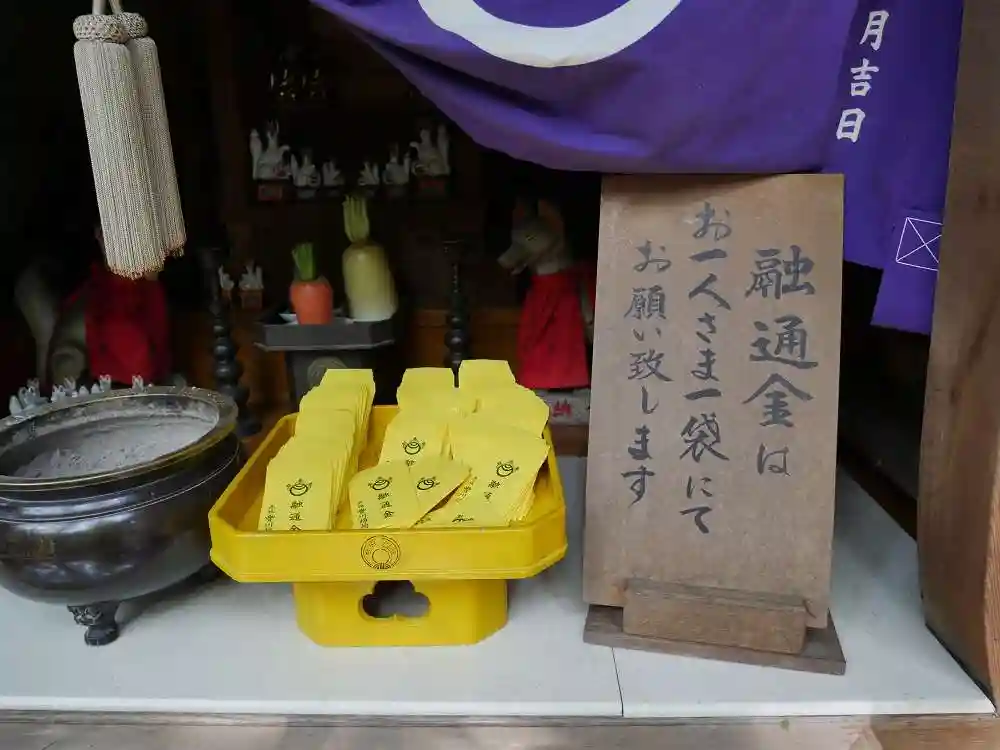 月吉日
融通金は
お一人さま一袋にて
お願い致します
融通金
融通金